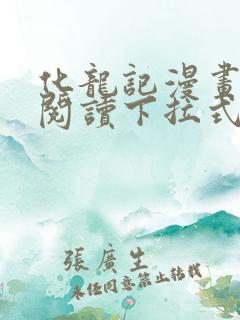 化龍記漫畫
閱讀下拉式
張廣生
未經同意禁止轉載